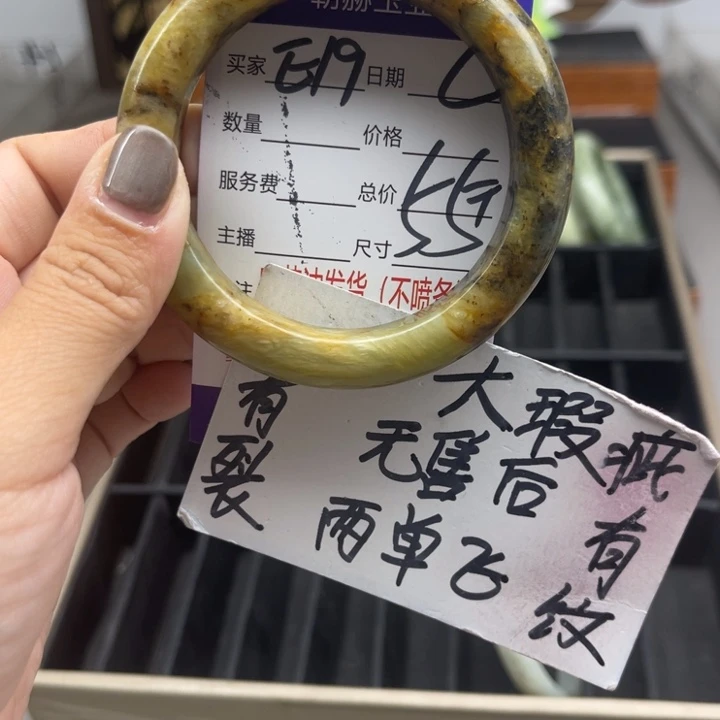 买家 E19 日期
数量 价格
服务费 总价 55
主播 尺寸
注
发货（不喷
大瑕疵
有裂 无售后 有纹
两单飞